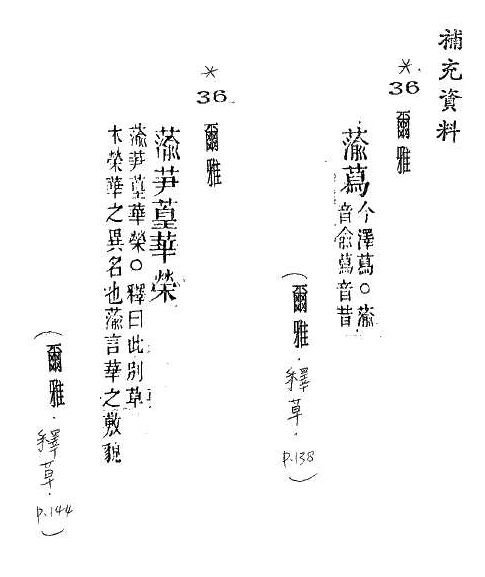 補充資料
*
36 爾雅
蕍蕮
今澤蕮○蕍
音俞蕮音昔
(爾雅·釋草·p.138)
*
36 爾雅
蕍芛葟華榮
蕍芛葟華榮○釋曰此別草
木榮華之異名也蕍言華之敷貌
(爾雅·釋草·p.144)